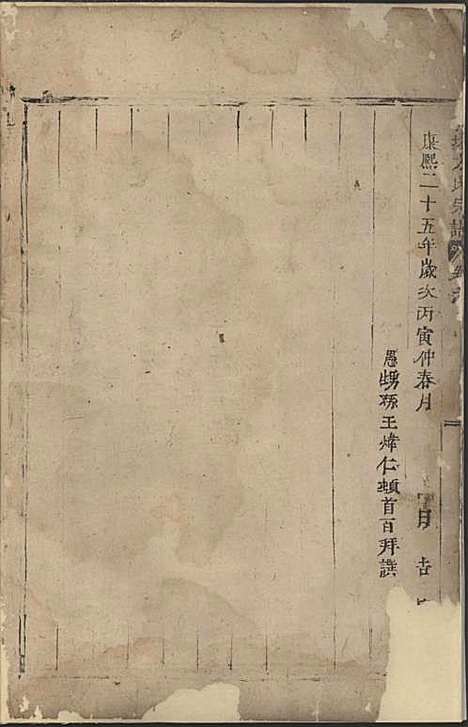 氏宗譜
康熙二十五年歲次丙寅仲春月 吉
愚甥孫王煒仁頓首百拜譔